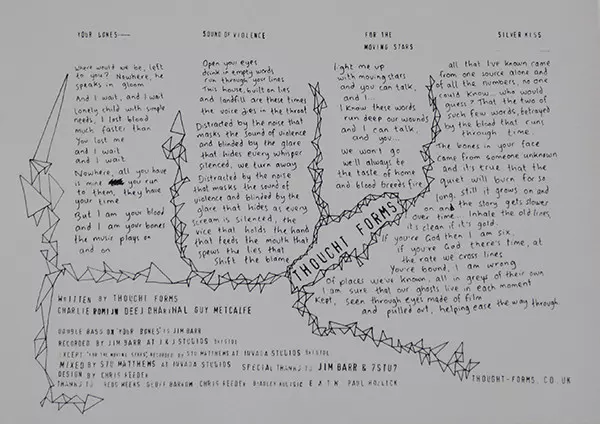 YOUR BONES
Where would we be, left
to you? Nowhere, he
speaks in gloom
And I wait, and I wait
lonely child with simple
needs, I lost blood
much faster than
You lost me
and I wait
and I wait
Nowhere, all you have
is mine you run
to them, they have
your time
But I am your blood
and I am your bones
the music plays on
and on
SOUND OF VIOLENCE
Open your eyes
drink in empty words
run through your lines
This house, built on lies
and landfill are these times
the voice dies in the throat
Distracted by the noise that
masks the sound of violence
and blinded by the glare
that hides every whisper
silenced, we turn away
Distracted by the noise
that masks the sound of
violence and blinded by the
glare that hides as every
scream is silenced, the
vice that holds the hand
that feeds the mouth that
spews the lies that
Shift the blame
FOR THE
MOVING STARS
Light me up
with moving stars
and you can talk,
and I...
I know these words
run deep our wounds
and I can talk,
and you...
we won't go
we'll always be
the taste of home
and blood breeds fire
SILVER KISS
all that I've known came
from one source alone and
of all the numbers, no one
could know... who would
guess? That the two of
such few words, betrayed
by the blood that runs
through time.
The bones in your face
came from someone unknown
and it's true that the
quiet will burn for so
long, still it grows on and
on and the story gets slower
over time. Inhale the old lines,
it's clean if it's gold.
If you're God then I am six,
if you're God there's time, at
the rate we cross lines
You're bound, I am wrong
Of places we've known, all in greys of their own
I am sure that our ghosts live in each moment
Kept, seen through eyes made of film
and pulled out, helping ease the way through.
THOUGHT FORMS
WRITTEN BY THOUGHT FORMS
CHARLIE ROMIJN DEEJ DHARIWAL GUY METCALFE
DOUBLE BASS ON 'YOUR BONES' IS JIM BARR
RECORDED BY JIM BARR AT J&J STUDIOS BRISTOL
EXCEPT 'FOR THE MOVING STARS' RECORDED BY STU MATTHEWS AT INVADA STUDIOS BRISTOL
MIXED BY STU MATTHEWS AT INVADA STUDIOS SPECIAL THANKS TO JIM BARR & 7STU7
DESIGN BY CHRIS REEDER
THANKS TO REDG WEEKS GEOFF BARROW CHRIS REEDER PAUL HORLICK
THOUGHT-FORMS.CO.UK